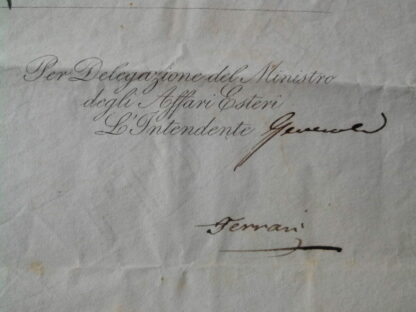 Per Delegazione del Ministro
degli Affari Esteri
L'Intendente Generale
Ferrari